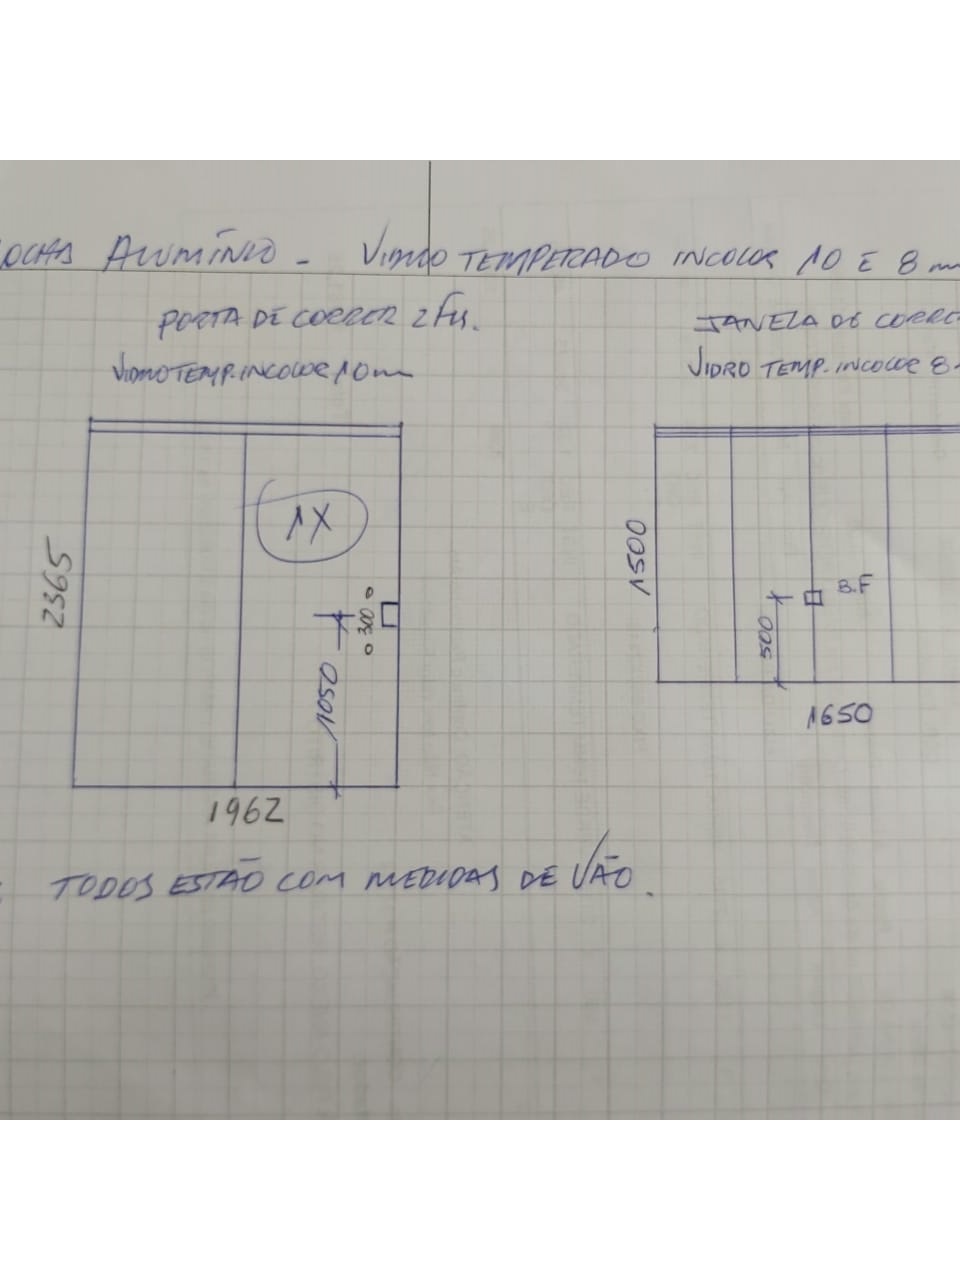 ALUMÍNIO - VIDRO TEMPERADO INCOLOR 10 E 8 mm
PORTA DE CORRER 2 FLS.
VIDRO TEMP. INCOLOR 10 mm
JANELA DE CORRE
VIDRO TEMP. INCOLOR 8
1X
2365
300
1050
1962
1500
B.F
500
1650
TODOS ESTÃO COM MEDIDAS DE VÃO.